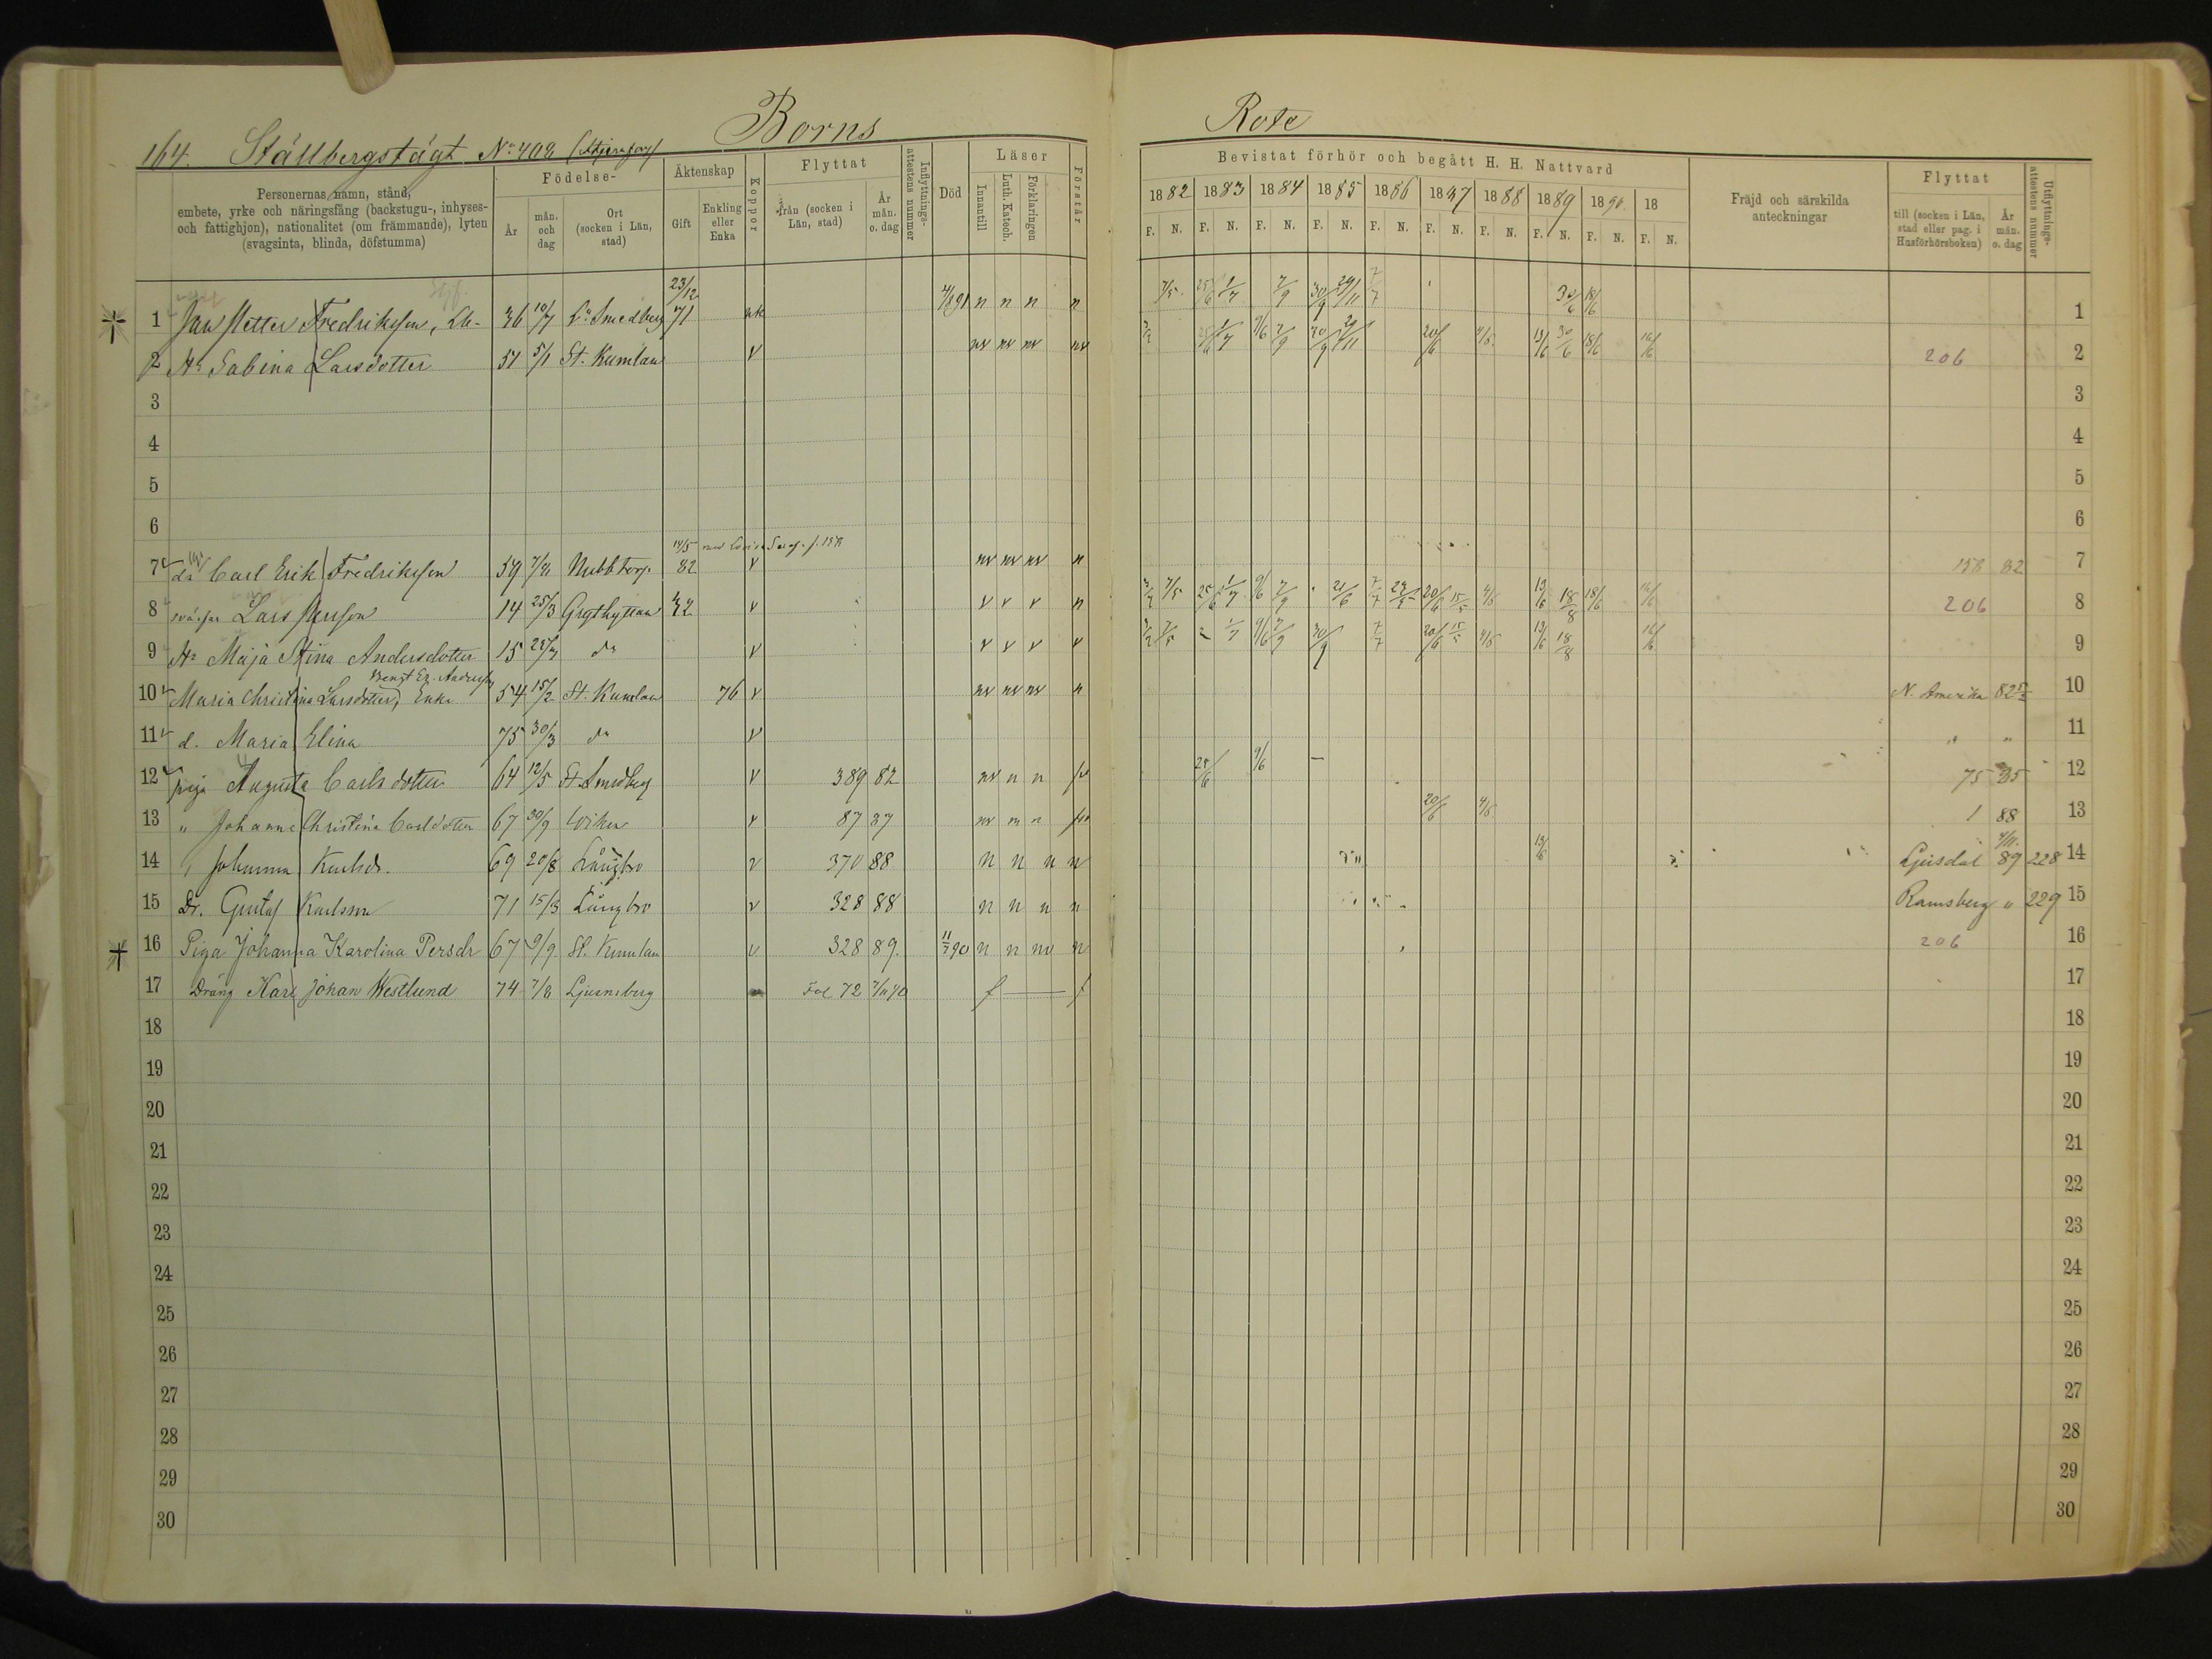 Borns Rote
164. Ställbergstägt No 408
Personernas namn, stånd, embete, yrke och näringsfång (backstugu-, inhyses- och fattighjon), nationalitet (om främmande), lyten (svagsinta, blinda, döfstumma)
Födelse-
År
mån. och dag
Ort (socken i Län, stad)
Äktenskap
Gift
Enkling eller Enka
Koppor
Flyttat
från (socken i Län, stad)
År mån. o. dag
Inflyttnings-attestens nummer
Död
Läser
Innantill
Luth. Katech.
Förklaringen
Förstår
Bevistat förhör och begått H. H. Nattvard
1882 1883 1884 1885 1886 1887 1888 1889 1890 18
F. N. F. N. F. N. F. N. F. N. F. N. F. N. F. N. F. N. F. N.
Fräjd och särskilda anteckningar
Flyttat
till (socken i Län, stad eller pag. i Husförhörsboken)
År mån. o. dag
Utflyttnings-attestens nummer
1 Jan Petter Fredriksson 36 10/7 Smedberg 23/12 71 n n n n 7/5 25/6 1/7 7/9 30/9 29/11 7/7 30/6 18/6 1
2 Hu Sabina Larsdotter 51 5/1 St. Kumlan v 25/6 1/7 9/6 7/9 30/9 29/11 20/6 4/6 13/6 30/6 18/6 206 2
3 3
4 4
5 5
6 6
14/5
7 Carl Erik Fredriksson 59 Nubbtorp 82 v n 158 82 7
8 Lars Persson 14 25/3 Grythyttan v v v v n 7/5 25/6 1/7 9/6 7/9 21/6 7/7 20/6 15/5 4/6 13/6 18/8 18/6 206 8
9 Hu Maja Stina Andersdotter 15 do v v v v v 1/7 9/6 7/9 30/9 7/7 20/6 15/5 4/6 13/6 18/8 9
Bengt Er. Andersson
10 Maria Christina Larsdotter, Enka 54 15/2 St. Kumlan 76 v n N. Amerika 82 10
11 d. Maria Elina 75 30/3 do v " " 11
12 piga Augusta Carlsdotter 64 12/5 St. Smedberg v 389 82 n n 25/6 9/6 — 75 85 12
13 " Johanna Christina Carlsdotter 67 30/9 Wiken v 87 87 20/6 4/6 1 88 13
14 " Johanna Karlsdr. 69 20/8 Långbro v 370 88 n n n n 13/6 Ljusdal 4/11 89 228 14
15 Dr. Gustaf Karlsson 71 15/3 Långbro v 328 88 n n n n Ramsberg " 229 15
16 Piga Johanna Karolina Persdr 67 9/9 St. Kumlan v 328 89. 90 n n nv n 206 16
17 Dräng Karl Johan Westlund 74 7/8 Ljusnsberg Fol 72 f — f 17
18 18
19 19
20 20
21 21
22 22
23 23
24 24
25 25
26 26
27 27
28 28
29 29
30 30